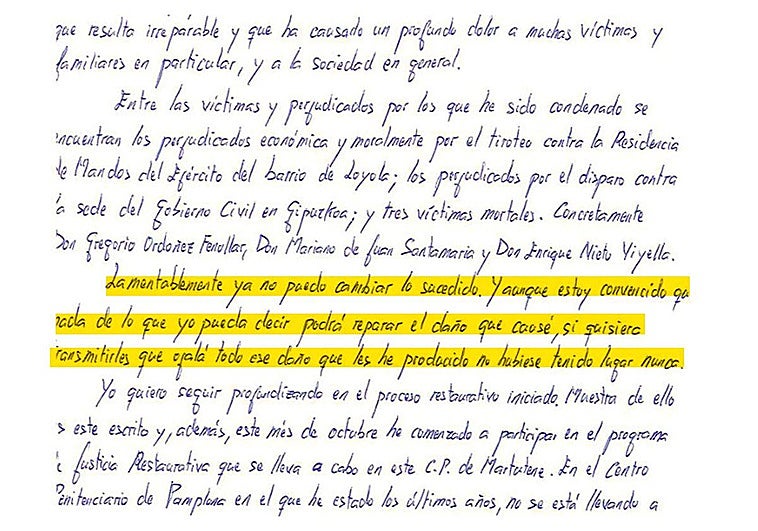 que resulta irreparable y que ha causado un profundo dolor a muchas víctimas y
familiares en particular, y a la sociedad en general.
Entre las víctimas y perjudicados por los que he sido condenado se
ncuentran los perjudicados económica y moralmente por el tiroteo contra la Residencia
de Mandos del Ejército del barrio de Loyola; los perjudicados por el disparo contra
la sede del Gobierno Civil en Gipuzkoa; y tres víctimas mortales. Concretamente
Don Gregorio Ordoñez Fenollar, Don Mariano de Juan Santamaria y Don Enrique Nieto Viyella.
Lamentablemente ya no puedo cambiar lo sucedido. Y aunque estoy convencido qu
nada de lo que yo pueda decir podrá reparar el daño que causé, si quisiera
transmitirles que ojalá todo ese daño que les he producido no hubiese tenido lugar nunca.
Yo quiero seguir profundizando en el proceso restaurativo iniciado. Muestra de ello
s este escrito y, además, este mes de octubre he comenzado a participar en el programa
e Justicia Restaurativa que se lleva a cabo en este C.P. de Martutene. En el Centro
Penitenciario de Pamplona en el que he estado los últimos años, no se está llevando a